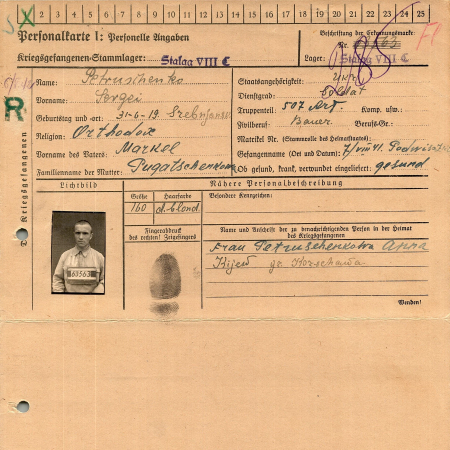 2 3 4 5 6 7 8 9 10 11 12 13 14 15 16 17 18 19 20 21 22 23 24 25
Personalkarte I: Personelle Angaben
Beschriftung der Erkennungsmarke
Kriegsgefangenen-Stammlager: Stalag VIII C
Nr.
Lager: Stalag VIII C
Name: Petruschenko
Vorname: Sergei
Geburtstag und -ort: 31.6.19
Religion: Orthodox
Vorname des Vaters: Markel
Familienname der Mutter: Pugatschenkowa
Staatsangehörigkeit: Ukr.
Dienstgrad: Soldat
Truppenteil: 507 Art. Komp. usw.:
Zivilberuf: Bauer Berufs-Gr.:
Matrikel Nr. (Stammrolle des Heimatstaates):
Gefangennahme (Ort und Datum): 7/VIII 41.
Ob gesund, krank, verwundet eingeliefert: gesund
R
Kriegsgefangenen
Lichtbild
Nähere Personalbeschreibung
Größe
160
Haarfarbe
d.blond
Besondere Kennzeichen:
Fingerabdruck
des rechten! Zeigefingers
Name und Anschrift der zu benachrichtigenden Person in der Heimat
des Kriegsgefangenen
Frau Petruschenkowa Anna
Kijew
63563
Wenden!